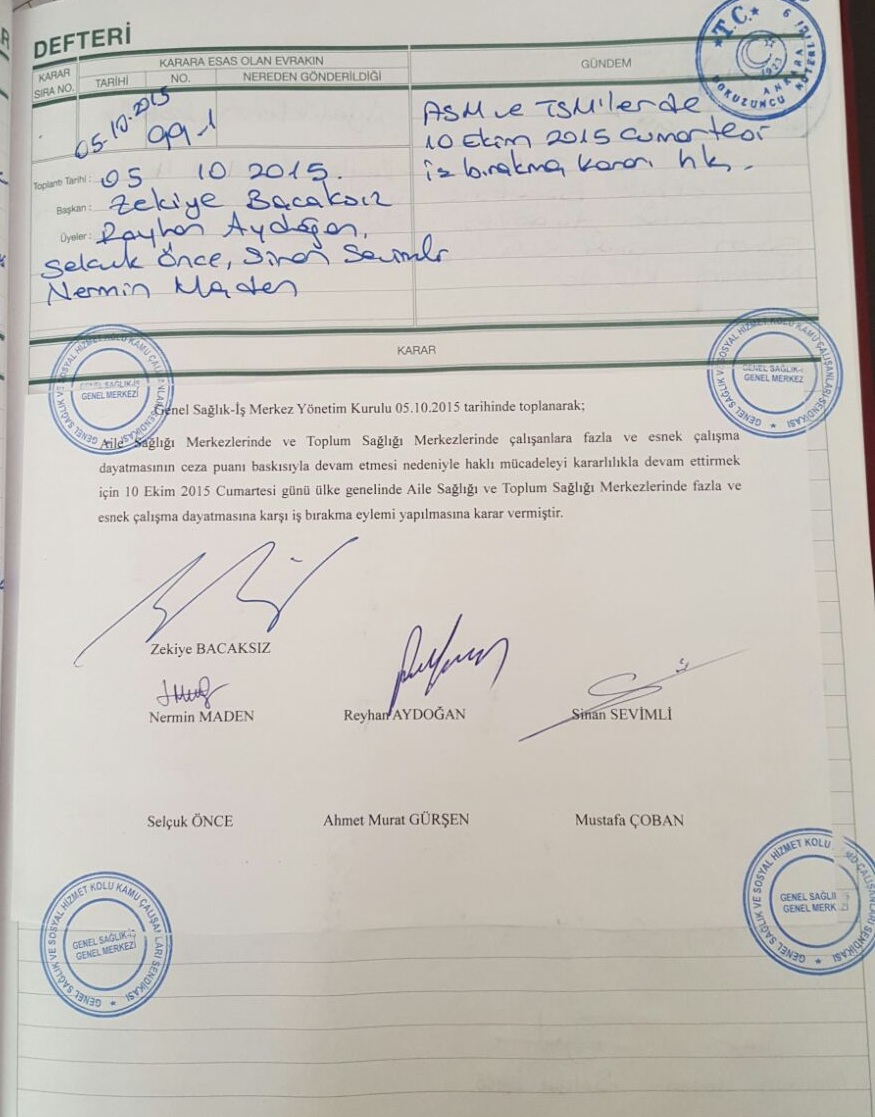 DEFTERİ
KARAR SIRA NO.
KARARA ESAS OLAN EVRAKIN
TARİHİ NO. NEREDEN GÖNDERİLDİĞİ
GÜNDEM
T.C.
ANKARA
DOKUZUNCU
1923
05-10-2015 99.1
ASM ve TSM'lerde
10 Ekim 2015 Cumartesi
iş bırakma kararı hk.
Toplantı Tarihi : 05 10 2015.
Başkan : Zekiye Bacaksız
Üyeler : Reyhan Aydoğan,
Selçuk Önce, Sinan Sevimli
Nermin Maden
KARAR
GENEL SAĞLIK VE SOSYAL HİZMET KOLU KAMU ÇALIŞANLARI SENDİKASI
GENEL SAĞLIK-İŞ
GENEL MERKEZİ
GENEL SAĞLIK VE SOSYAL HİZMET KOLU KAMU ÇALIŞANLARI SENDİKASI
GENEL SAĞLIK-İ
GENEL MERKEZ
Genel Sağlık-İş Merkez Yönetim Kurulu 05.10.2015 tarihinde toplanarak;
Aile Sağlığı Merkezlerinde ve Toplum Sağlığı Merkezlerinde çalışanlara fazla ve esnek çalışma
dayatmasının ceza puanı baskısıyla devam etmesi nedeniyle haklı mücadeleyi kararlılıkla devam ettirmek
için 10 Ekim 2015 Cumartesi günü ülke genelinde Aile Sağlığı ve Toplum Sağlığı Merkezlerinde fazla ve
esnek çalışma dayatmasına karşı iş bırakma eylemi yapılmasına karar vermiştir.
Zekiye BACAKSIZ
Nermin MADEN Reyhan AYDOĞAN Sinan SEVİMLİ
Selçuk ÖNCE Ahmet Murat GÜRŞEN Mustafa ÇOBAN
GENEL SAĞLIK VE SOSYAL HİZMET KOLU KAMU ÇALIŞANLARI SENDİKASI
GENEL SAĞLIK-İŞ
GENEL MERKEZİ
GENEL SAĞLIK VE SOSYAL HİZMET KOLU KAMU ÇALIŞANLARI SENDİKASI
GENEL SAĞLI
GENEL MERK Zİ